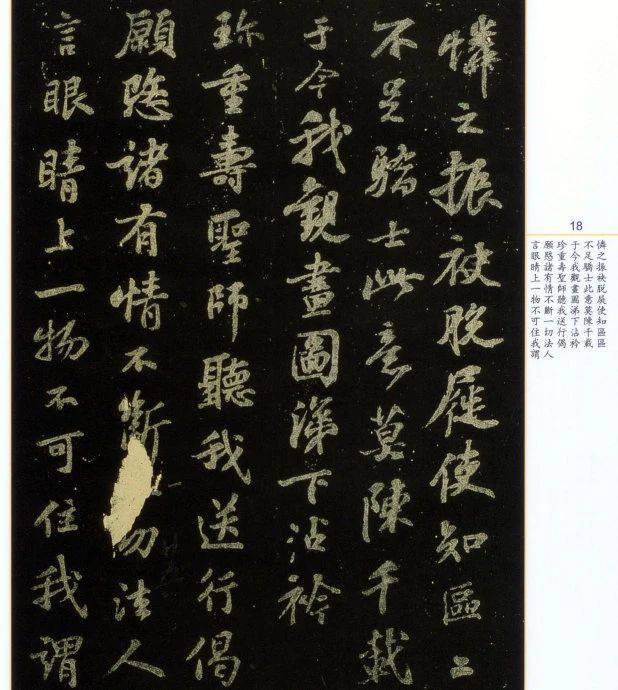 憐之振袂脫屣使知區〻
不足驕士此意莫陳千載
于今我觀畫圖涕下沾衿
珍重壽聖師聽我送行偈
願愍諸有情不斷一切法人
言眼睛上一物不可住我謂
18
憐之振袂脫屣使知區區
不足驕士此意莫陳千載
于今我觀畫圖涕下沾衿
珍重壽聖師聽我送行偈
願愍諸有情不斷一切法人
言眼睛上一物不可住我謂